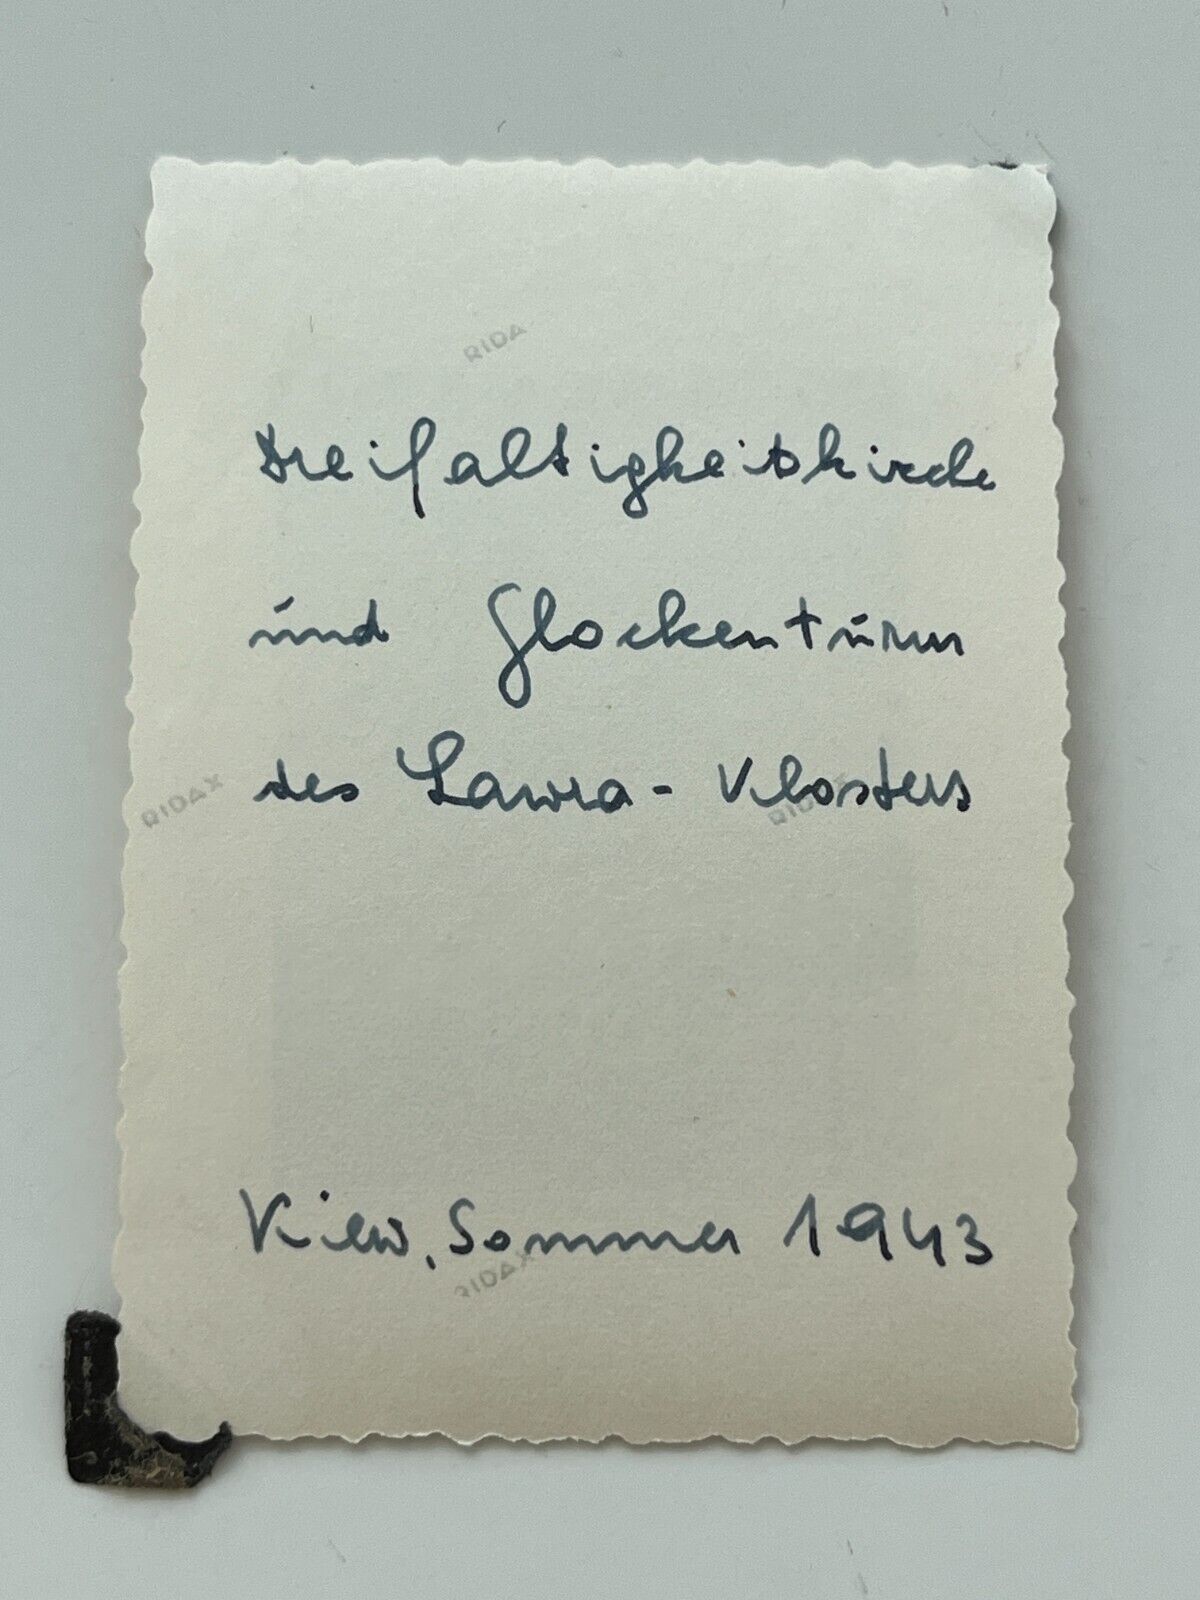 RIDA
Dreifaltigkeitskirche
und Glockenturm
des Lawra-Klosters
RIDAX
RIDAX
Kiew, Sommer 1943
RIDAX